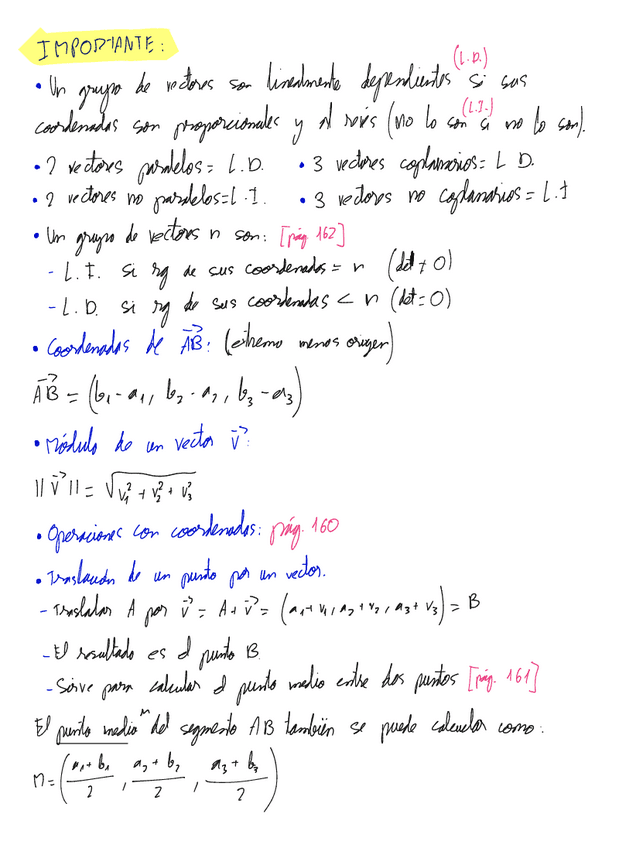 IMPORTANTE:
• Un grupo de vectores son linealmente dependientes (L.D.) si sus
coordenadas son proporcionales y al revés (no lo son (L.I.) si no lo son).
• 2 vectores paralelos = L.D. • 3 vectores coplanarios = L D.
• 2 vectores no paralelos = L.I. • 3 vectores no coplanarios = L.I
• Un grupo de vectores n son: [pág 162]
- L.I. si rg de sus coordenadas = n (det ≠ 0)
- L.D. si rg de sus coordenadas < n (det = 0)
• Coordenadas de AB⃗: (extremo menos origen)
AB⃗ = (b₁ - a₁, b₂ - a₂, b₃ - a₃)
• Módulo de un vector v⃗:
||v⃗|| = √(v₁² + v₂² + v₃²)
• Operaciones con coordenadas: pág. 160
• Traslación de un punto por un vector.
- Trasladar A por v⃗ = A + v⃗ = (a₁ + v₁, a₂ + v₂, a₃ + v₃) = B
- El resultado es el punto B.
- Sirve para calcular el punto medio entre dos puntos [pág. 161]
El punto medio M del segmento AB también se puede calcular como:
M = ((a₁ + b₁)/2, (a₂ + b₂)/2, (a₃ + b₃)/2)